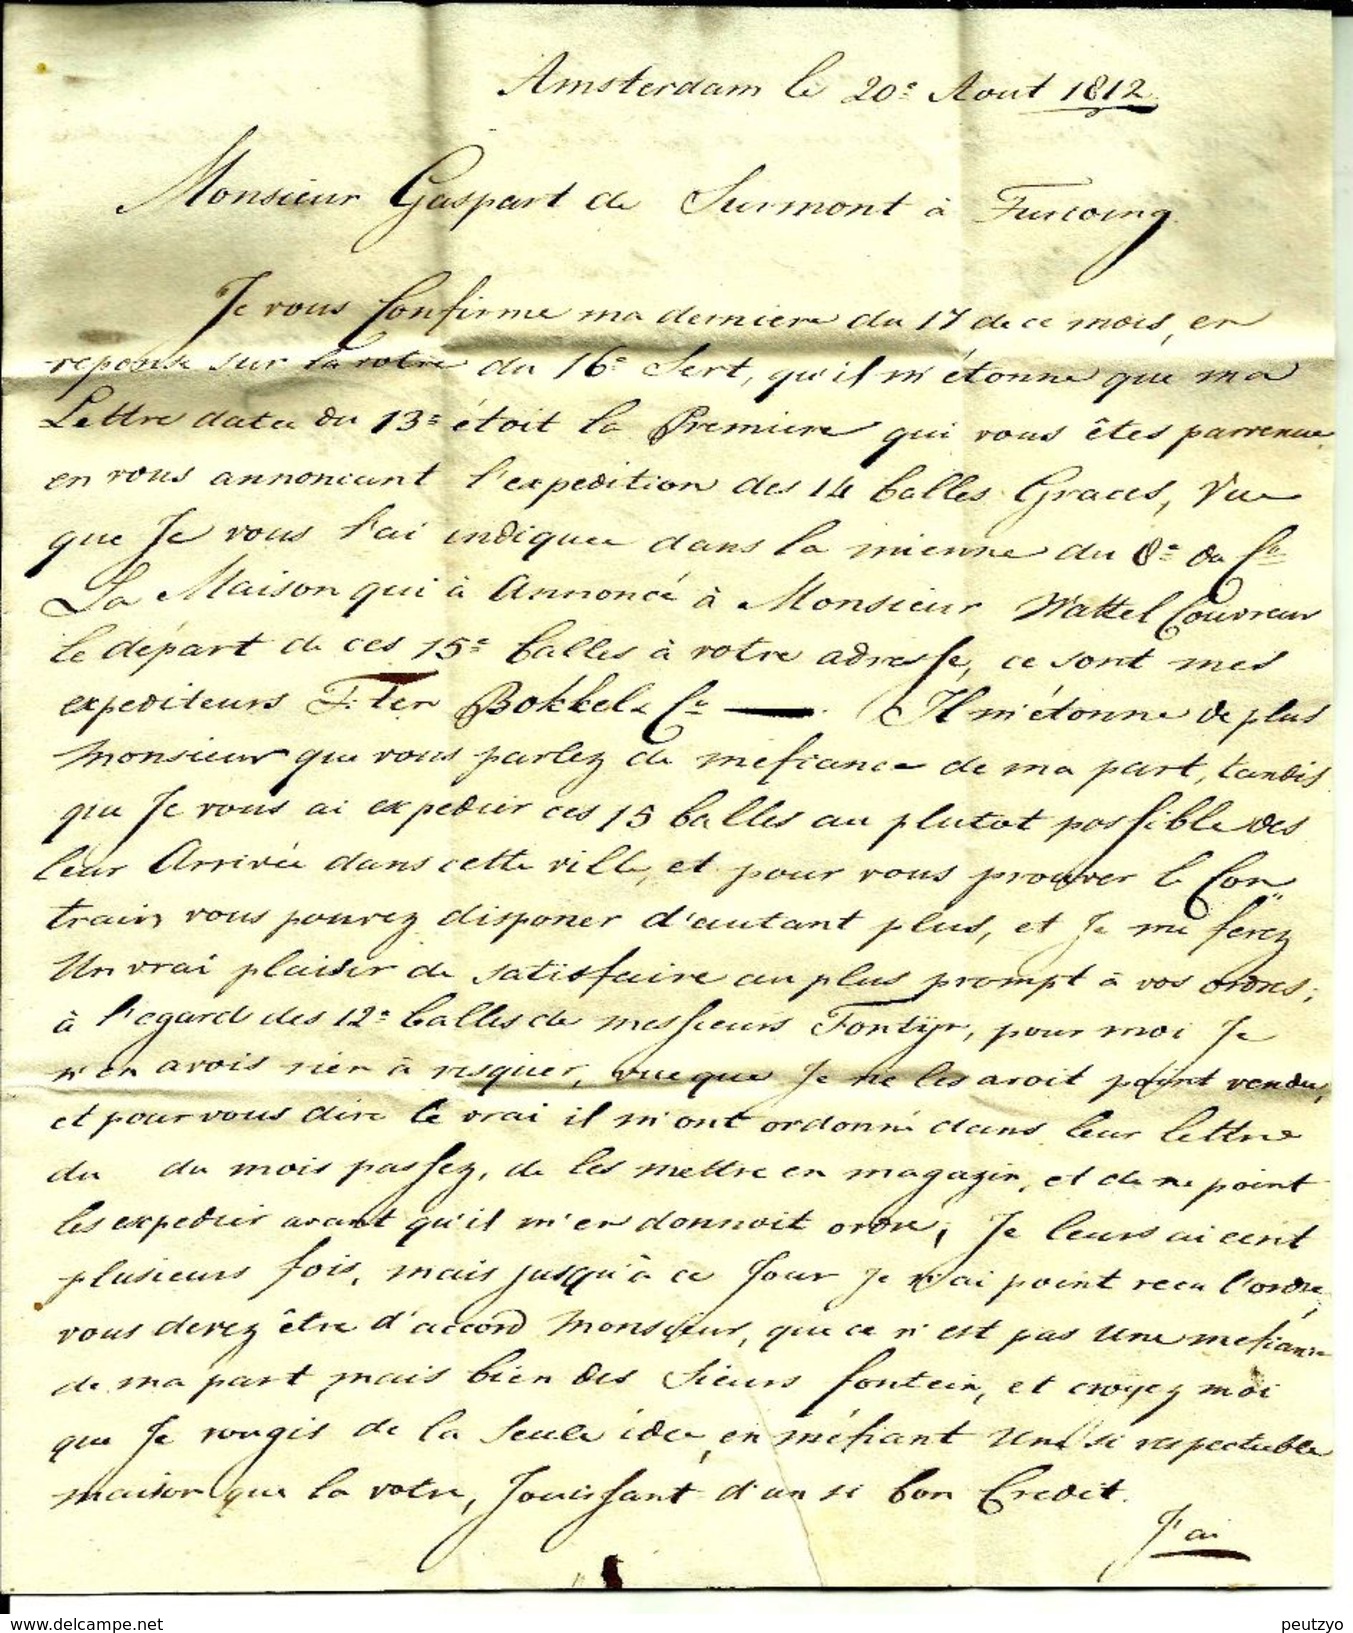 Amsterdam le 20e Aout 1812
Monsieur Gaspart de Surmont à Turcoing
Je vous Confirme ma derniere du 17 de ce mois, en
reponse sur la votre du 16e Sert, qu'il m'étonne que ma
Lettre datée du 13e étoit la Premiere qui vous êtes parvenue
en vous annoncant l'expedition des 14 balles Graces, Vue
que Je vous l'ai indiquee dans la mienne du 8e du Ct
La Maison qui à Annoncé à Monsieur Wattel Couvreur
le départ de ces 15e balles à votre adresse, ce sont mes
expediteurs F. Ter Bokkel & Co. Il m'étonne de plus
Monsieur que vous parlez de mefiance de ma part, tandis
que Je vous ai expedier ces 15 balles au plutot possible des
leur Arrivée dans cette ville, et pour vous prouver le Con
traire, vous pouvez disponer d'autant plus, et Je me ferez
Un vrai plaisir de satisfaire au plus prompt à vos ordres;
à l'egard des 12e balles de messieurs Fontijn, pour moi Je
n'en avois rien à risquer, vue que Je ne les avoit point vendu,
et pour vous dire le vrai il m'ont ordonné dans leur lettre
du du mois passez, de les mettre en magazin, et de ne point
les expedier avant qu'il m'en donnoit ordre, Je leurs ai ecrit
plusieurs fois, mais jusqu'à ce Jour Je n'ai point recu l'ordre,
vous devez être d'accord Monsieur, que ce n'est pas Une mefiance
de ma part mais bien des Sieurs fontein, et croyez moi
que Je rougis de la Seule idée, en méfiant Une si respectable
maison que la votre, Jouissant d'un si bon Credit.
J'ai
peutzyo